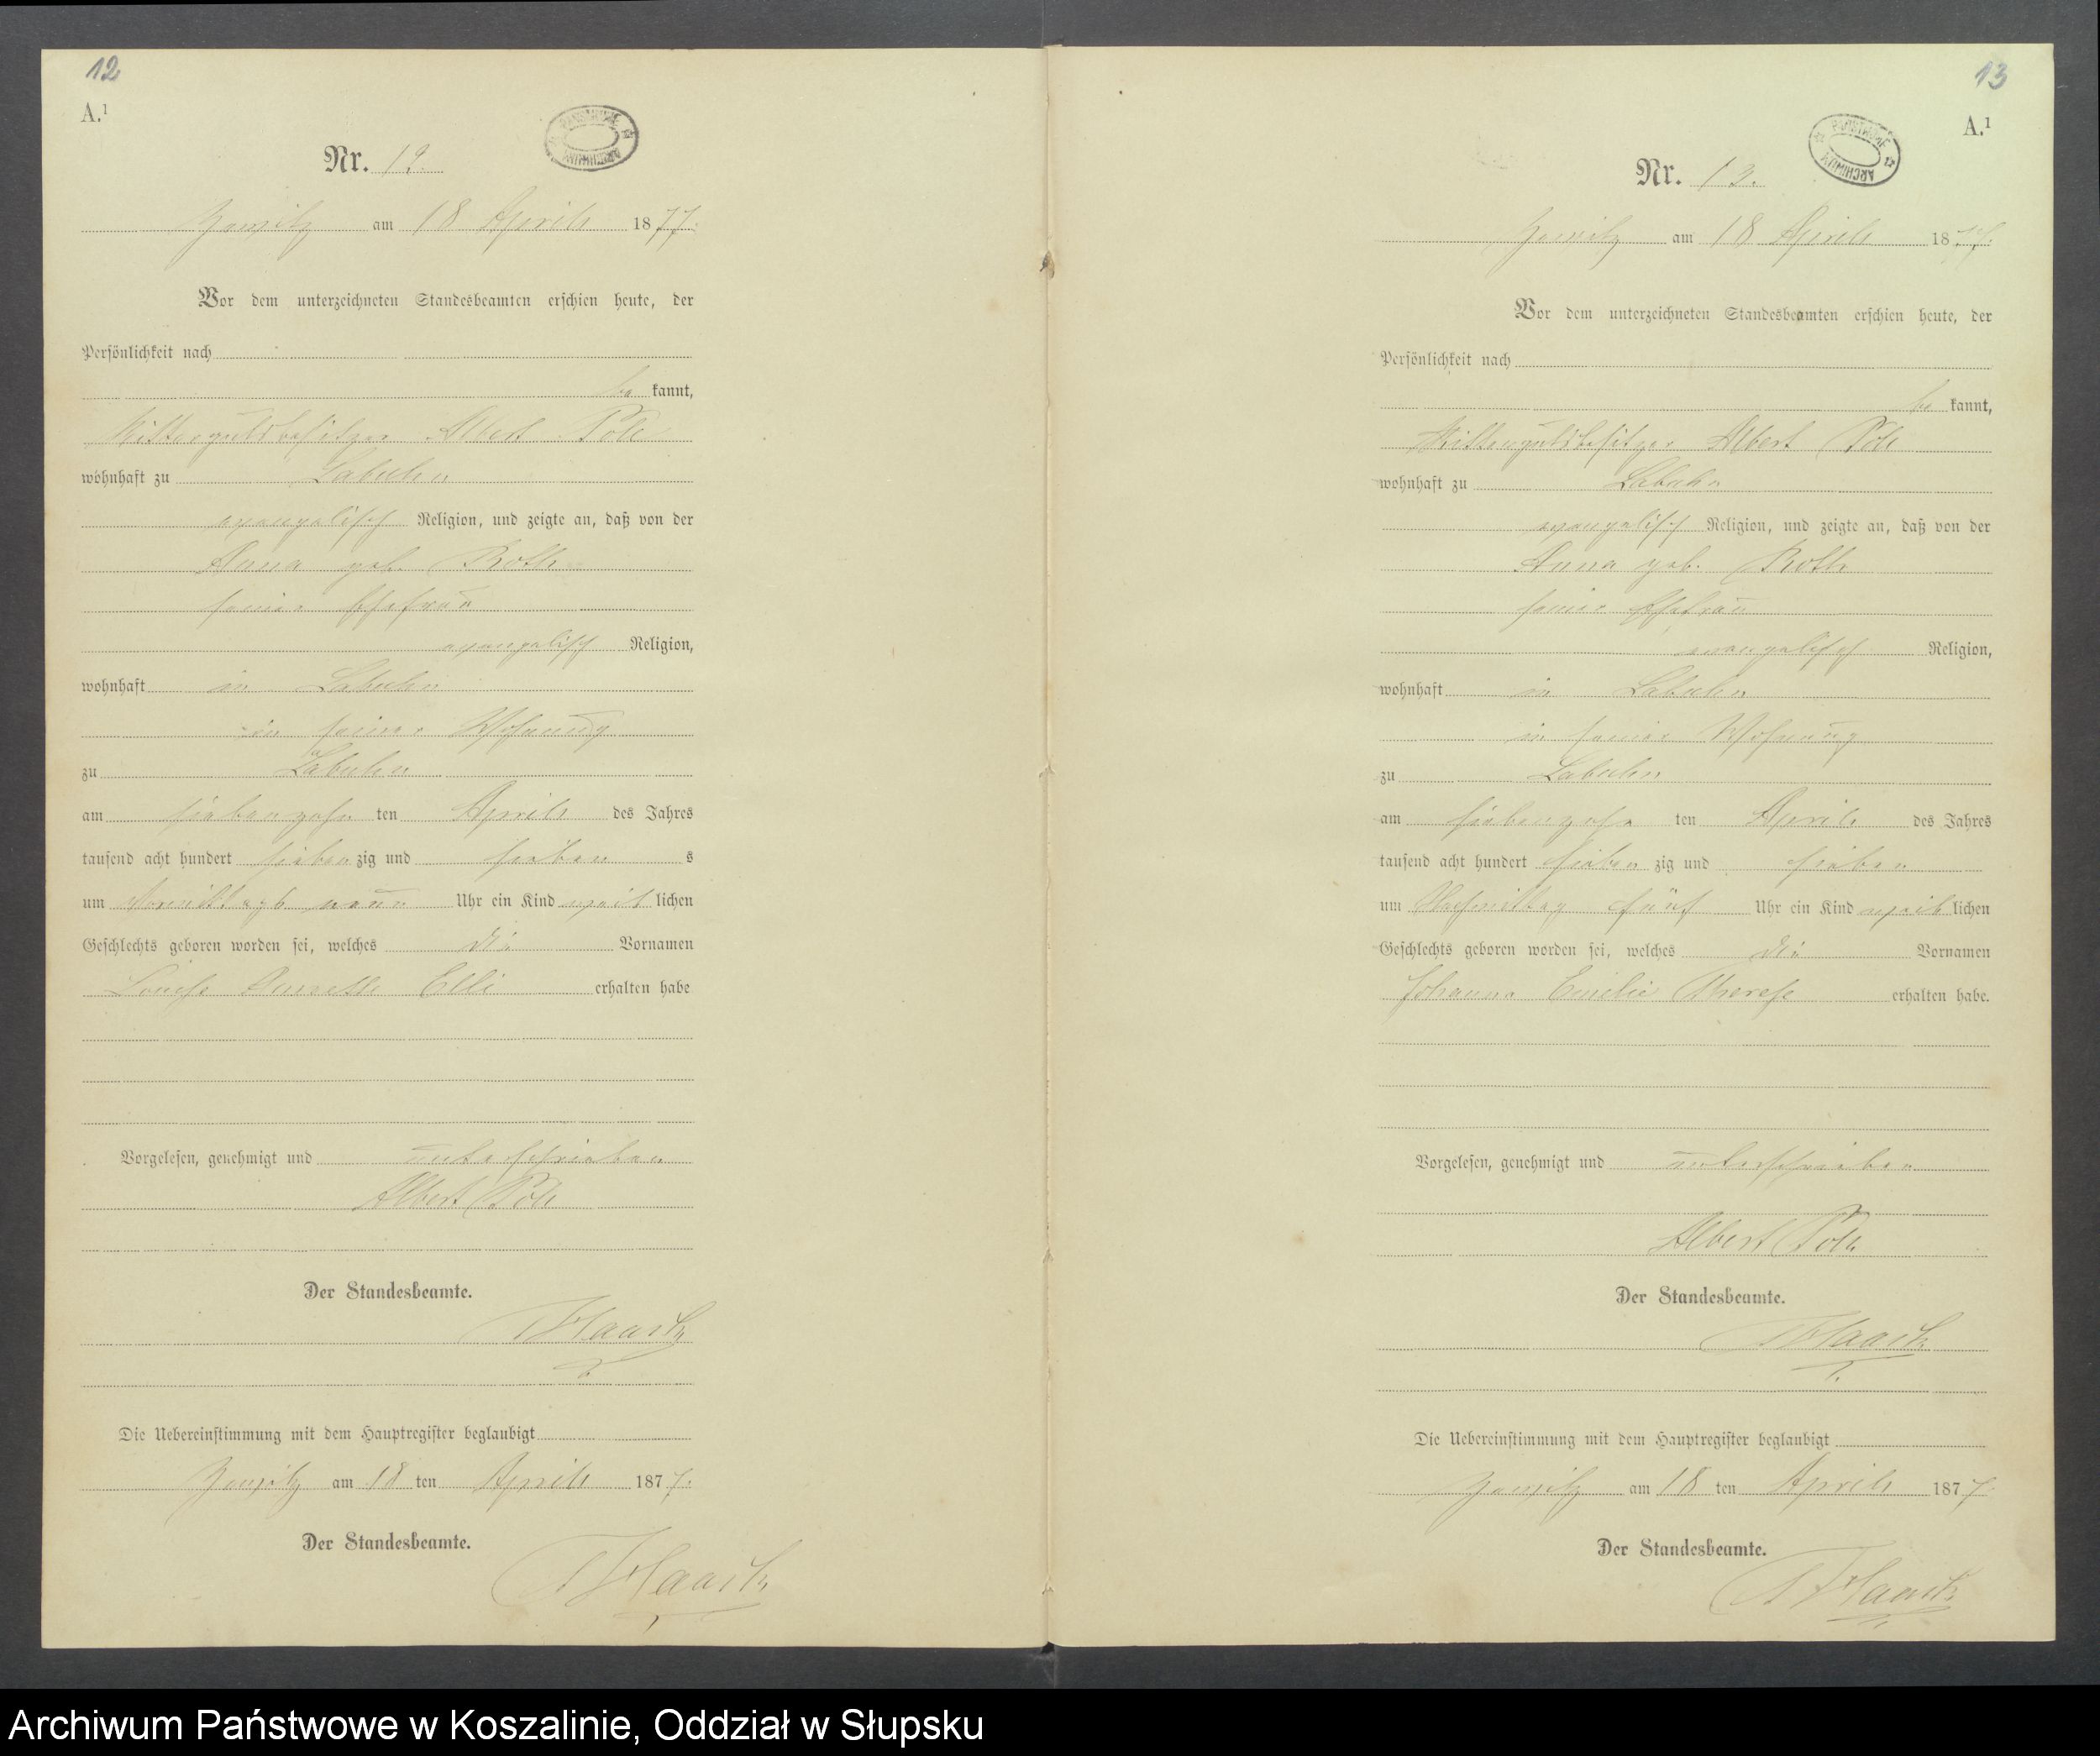 12
A.¹
Nr. 12.
am 18 April 1877.
Vor dem unterzeichneten Standesbeamten erschien heute, der
Persönlichkeit nach
be kannt,
Rittergutsbesitzer Albert
wohnhaft zu Labuhn
evangelisch Religion, und zeigte an, daß von der
Anna geb.
seiner Ehefrau
evangelisch Religion,
wohnhaft in Labuhn
in seiner Wohnung
zu Labuhn
am siebenzehn ten April des Jahres
tausend acht hundert sieben zig und sieben s
um Vormittags neun Uhr ein Kind weib lichen
Geschlechts geboren worden sei, welches die Vornamen
Louise Elli erhalten habe
Vorgelesen, genehmigt und unterschrieben
Albert
Der Standesbeamte.
Die Uebereinstimmung mit dem Hauptregister beglaubigt
am 18 ten April 1877.
Der Standesbeamte.
13
A.¹
Nr. 13.
am 18 April 1877.
Vor dem unterzeichneten Standesbeamten erschien heute, der
Persönlichkeit nach
be kannt,
Rittergutsbesitzer Albert
wohnhaft zu Labuhn
evangelisch Religion, und zeigte an, daß von der
Anna geb.
seiner Ehefrau
evangelisch Religion,
wohnhaft in Labuhn
in seiner Wohnung
zu Labuhn
am siebenzehn ten April des Jahres
tausend acht hundert sieben zig und sieben
um Nachmittag fünf Uhr ein Kind weib lichen
Geschlechts geboren worden sei, welches die Vornamen
Johanna Emilie Therese erhalten habe.
Vorgelesen, genehmigt und unterschrieben
Albert
Der Standesbeamte.
Die Uebereinstimmung mit dem Hauptregister beglaubigt
am 18 ten April 1877.
Der Standesbeamte.
Archiwum Państwowe w Koszalinie, Oddział w Słupsku